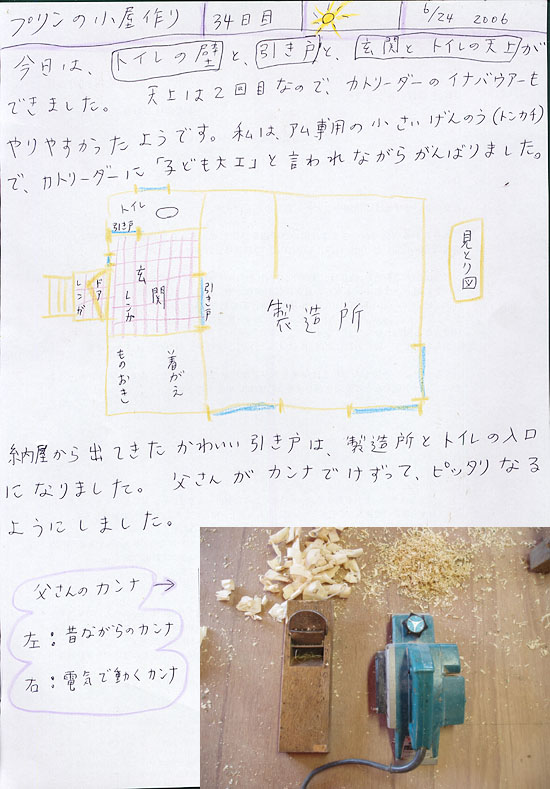 プリンの小屋作り 34日目 6/24 2006
今日は、トイレの壁と、引き戸と、玄関とトイレの天上が
できました。 天上は2回目なので、カトリーダーのイナバウアーも
やりやすかったようです。私は、アム専用の小さいげんのう(トンカチ)
で、カトリーダーに「子ども大工」と言われながらがんばりました。
トイレ
引き戸
玄関
レンガ
ドア
レンガ
引き戸
製造所
見とり図
着がえ
ものおき
納屋から出てきたかわいい引き戸は、製造所とトイレの入口
になりました。 父さんがカンナでけずって、ピッタリなる
ようにしました。
父さんのカンナ →
左:昔ながらのカンナ
右:電気で動くカンナ